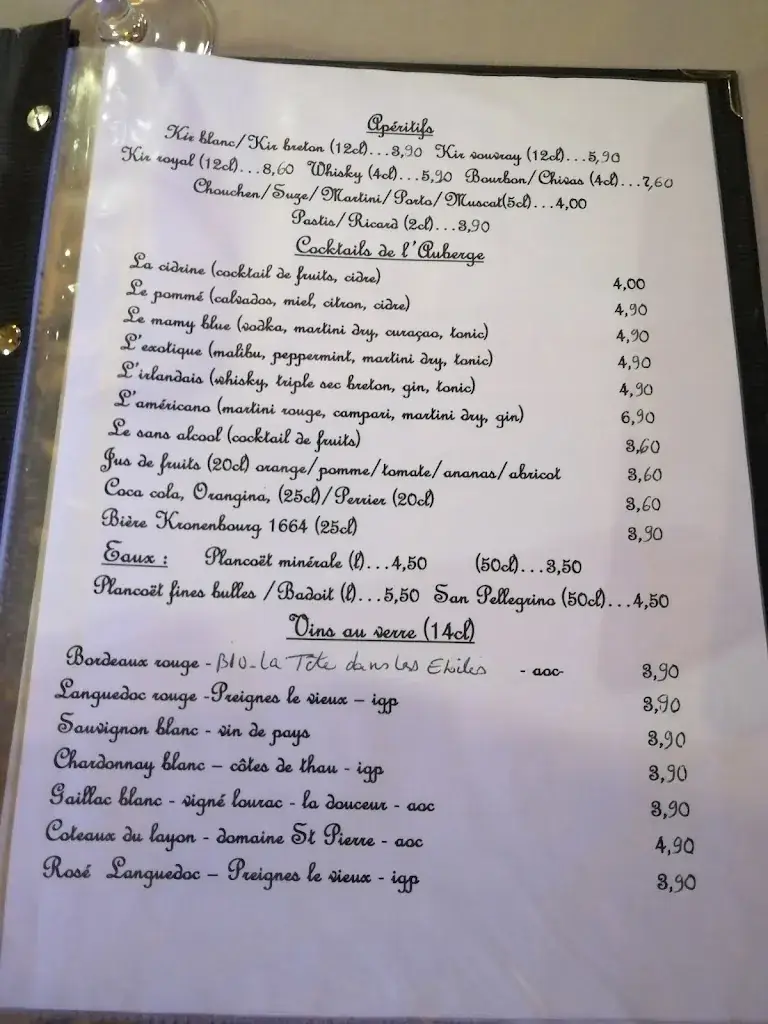 Apéritifs
Kir blanc/Kir breton (12cl)...3,90 Kir vouvray (12cl)...5,90
Kir royal (12cl)...8,60 Whisky (4cl)...5,90 Bourbon/Chivas (4cl)...7,60
Chouchen/Suze/Martini/Porto/Muscat(5cl)...4,00
Pastis/Ricard (2cl)...3,90
Cocktails de l'Auberge
La cidrine (cocktail de fruits, cidre) 4,00
Le pommé (calvados, miel, citron, cidre) 4,90
Le mamy blue (vodka, martini dry, curaçao, tonic) 4,90
L'exotique (malibu, peppermint, martini dry, tonic) 4,90
L'irlandais (whisky, triple sec breton, gin, tonic) 4,90
L'américano (martini rouge, campari, martini dry, gin) 6,90
Le sans alcool (cocktail de fruits) 3,60
Jus de fruits (20cl) orange/pomme/tomate/ananas/abricot 3,60
Coca cola, Orangina, (25cl)/Perrier (20cl) 3,60
Bière Kronenbourg 1664 (25cl) 3,90
Eaux : Plancoët minérale (l)...4,50 (50cl)...3,50
Plancoët fines bulles /Badoit (l)...5,50 San Pellegrino (50cl)...4,50
Vins au verre (14cl)
Bordeaux rouge - BIO - La Tête dans les Etoiles - aoc- 3,90
Languedoc rouge -Preignes le vieux – igp 3,90
Sauvignon blanc - vin de pays 3,90
Chardonnay blanc – côtes de thau - igp 3,90
Gaillac blanc - vigné lourac - la douceur - aoc 3,90
Coteaux du layon - domaine St Pierre - aoc 4,90
Rosé Languedoc – Preignes le vieux - igp 3,90